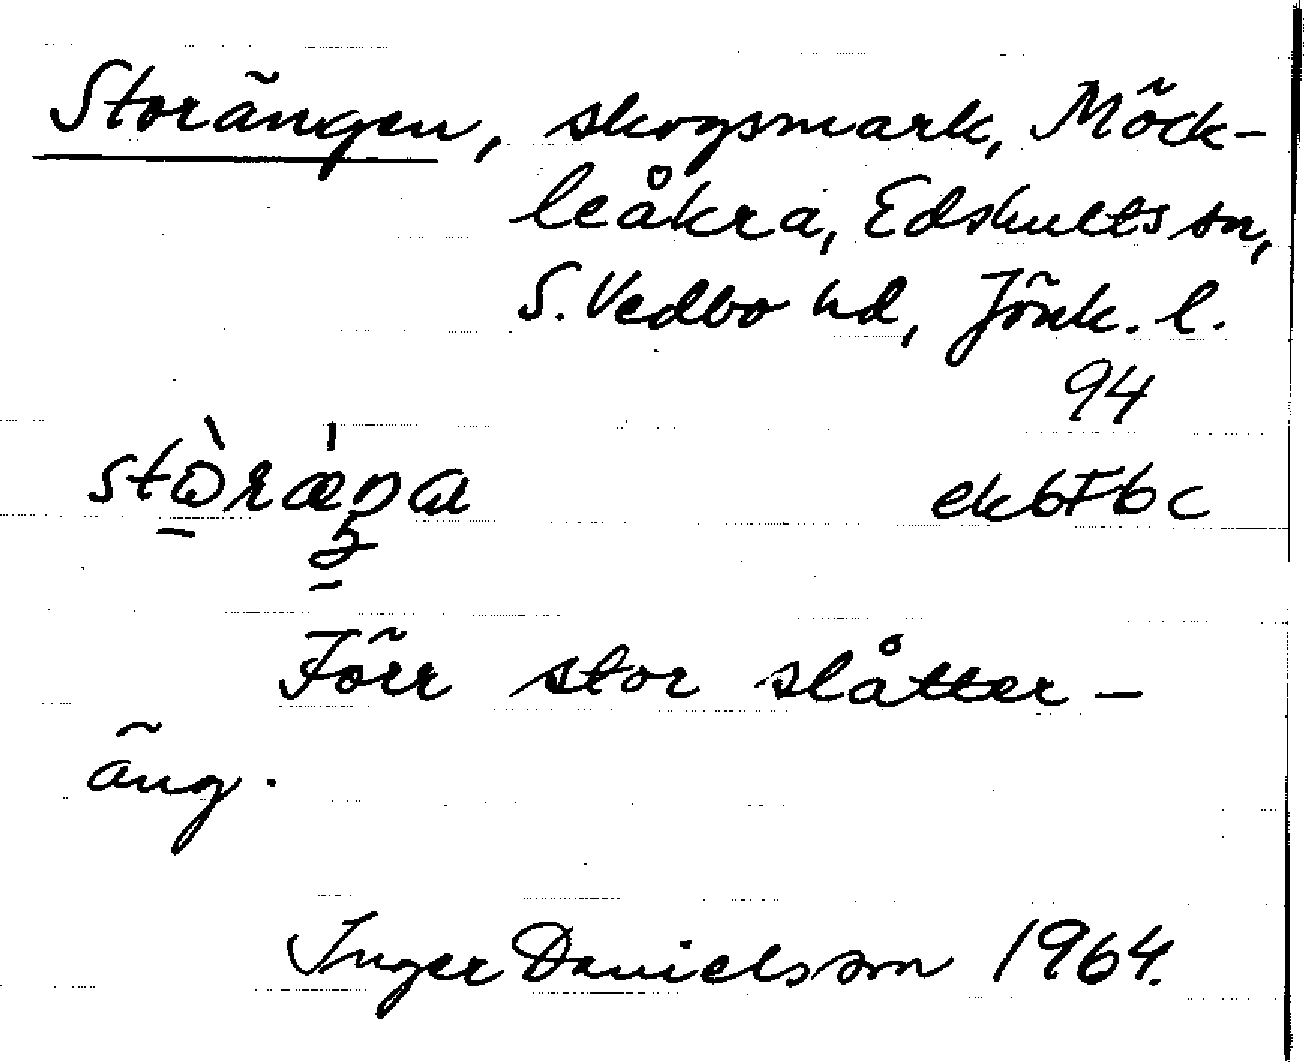 Storängen, skogsmark, Möck-
leåkra, Edshults sn,
S. Vedbo hd, Jönk. l.
94
ek6F6c
Förr stor slåtter-
äng.
Inger Danielsson 1964.